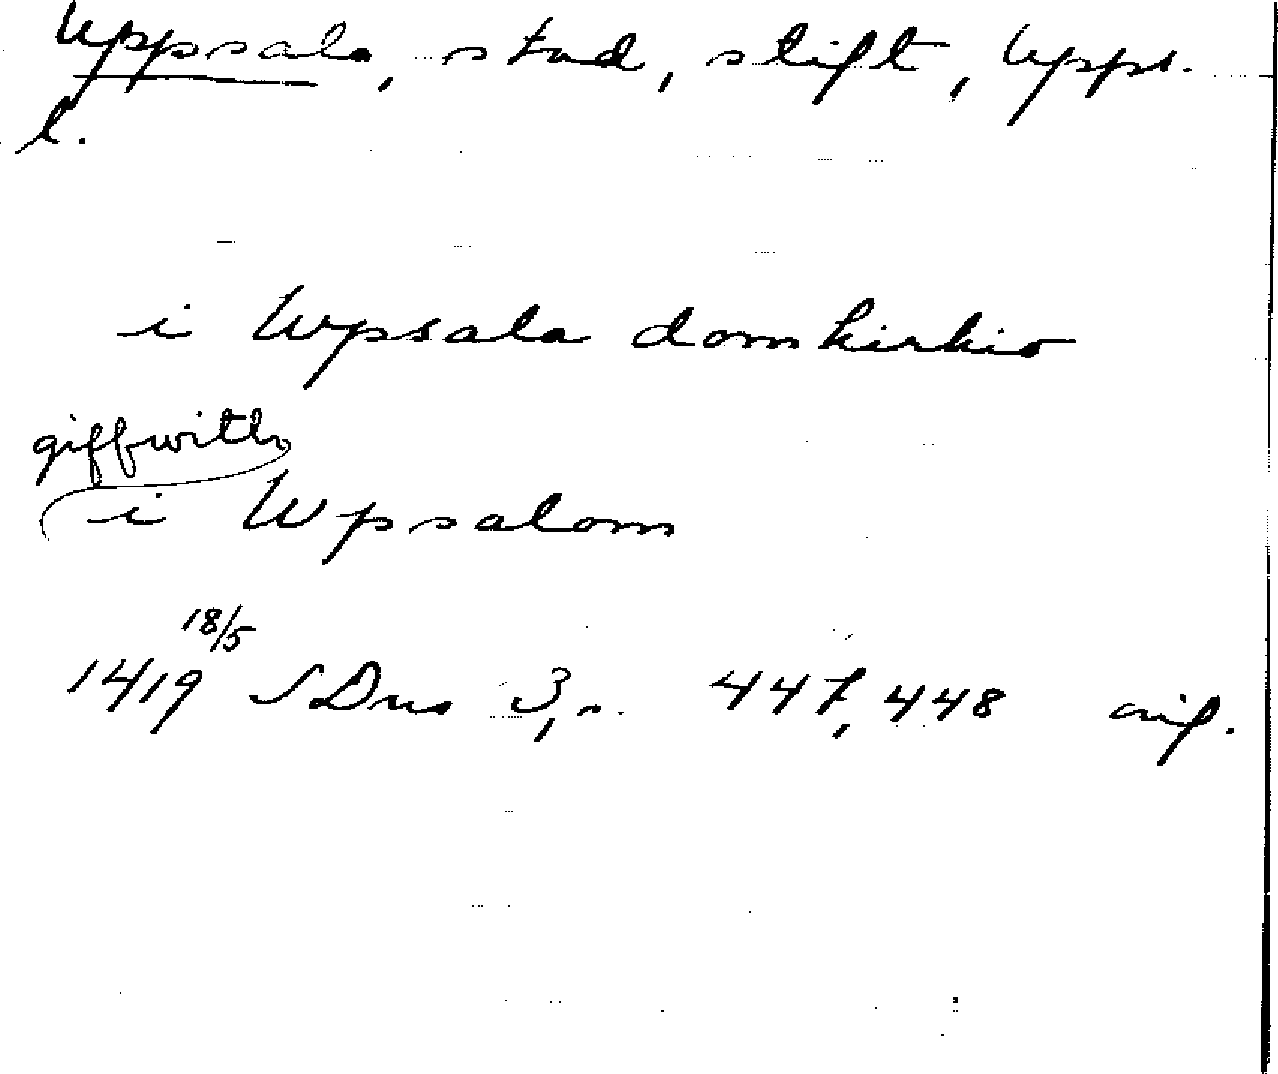 Uppsala, stad, stift, Upps.
l.
i Wpsala domkirkio
giffwith
i Wpsalom
1419 18/5 SDns 3, s. 447, 448 avs.